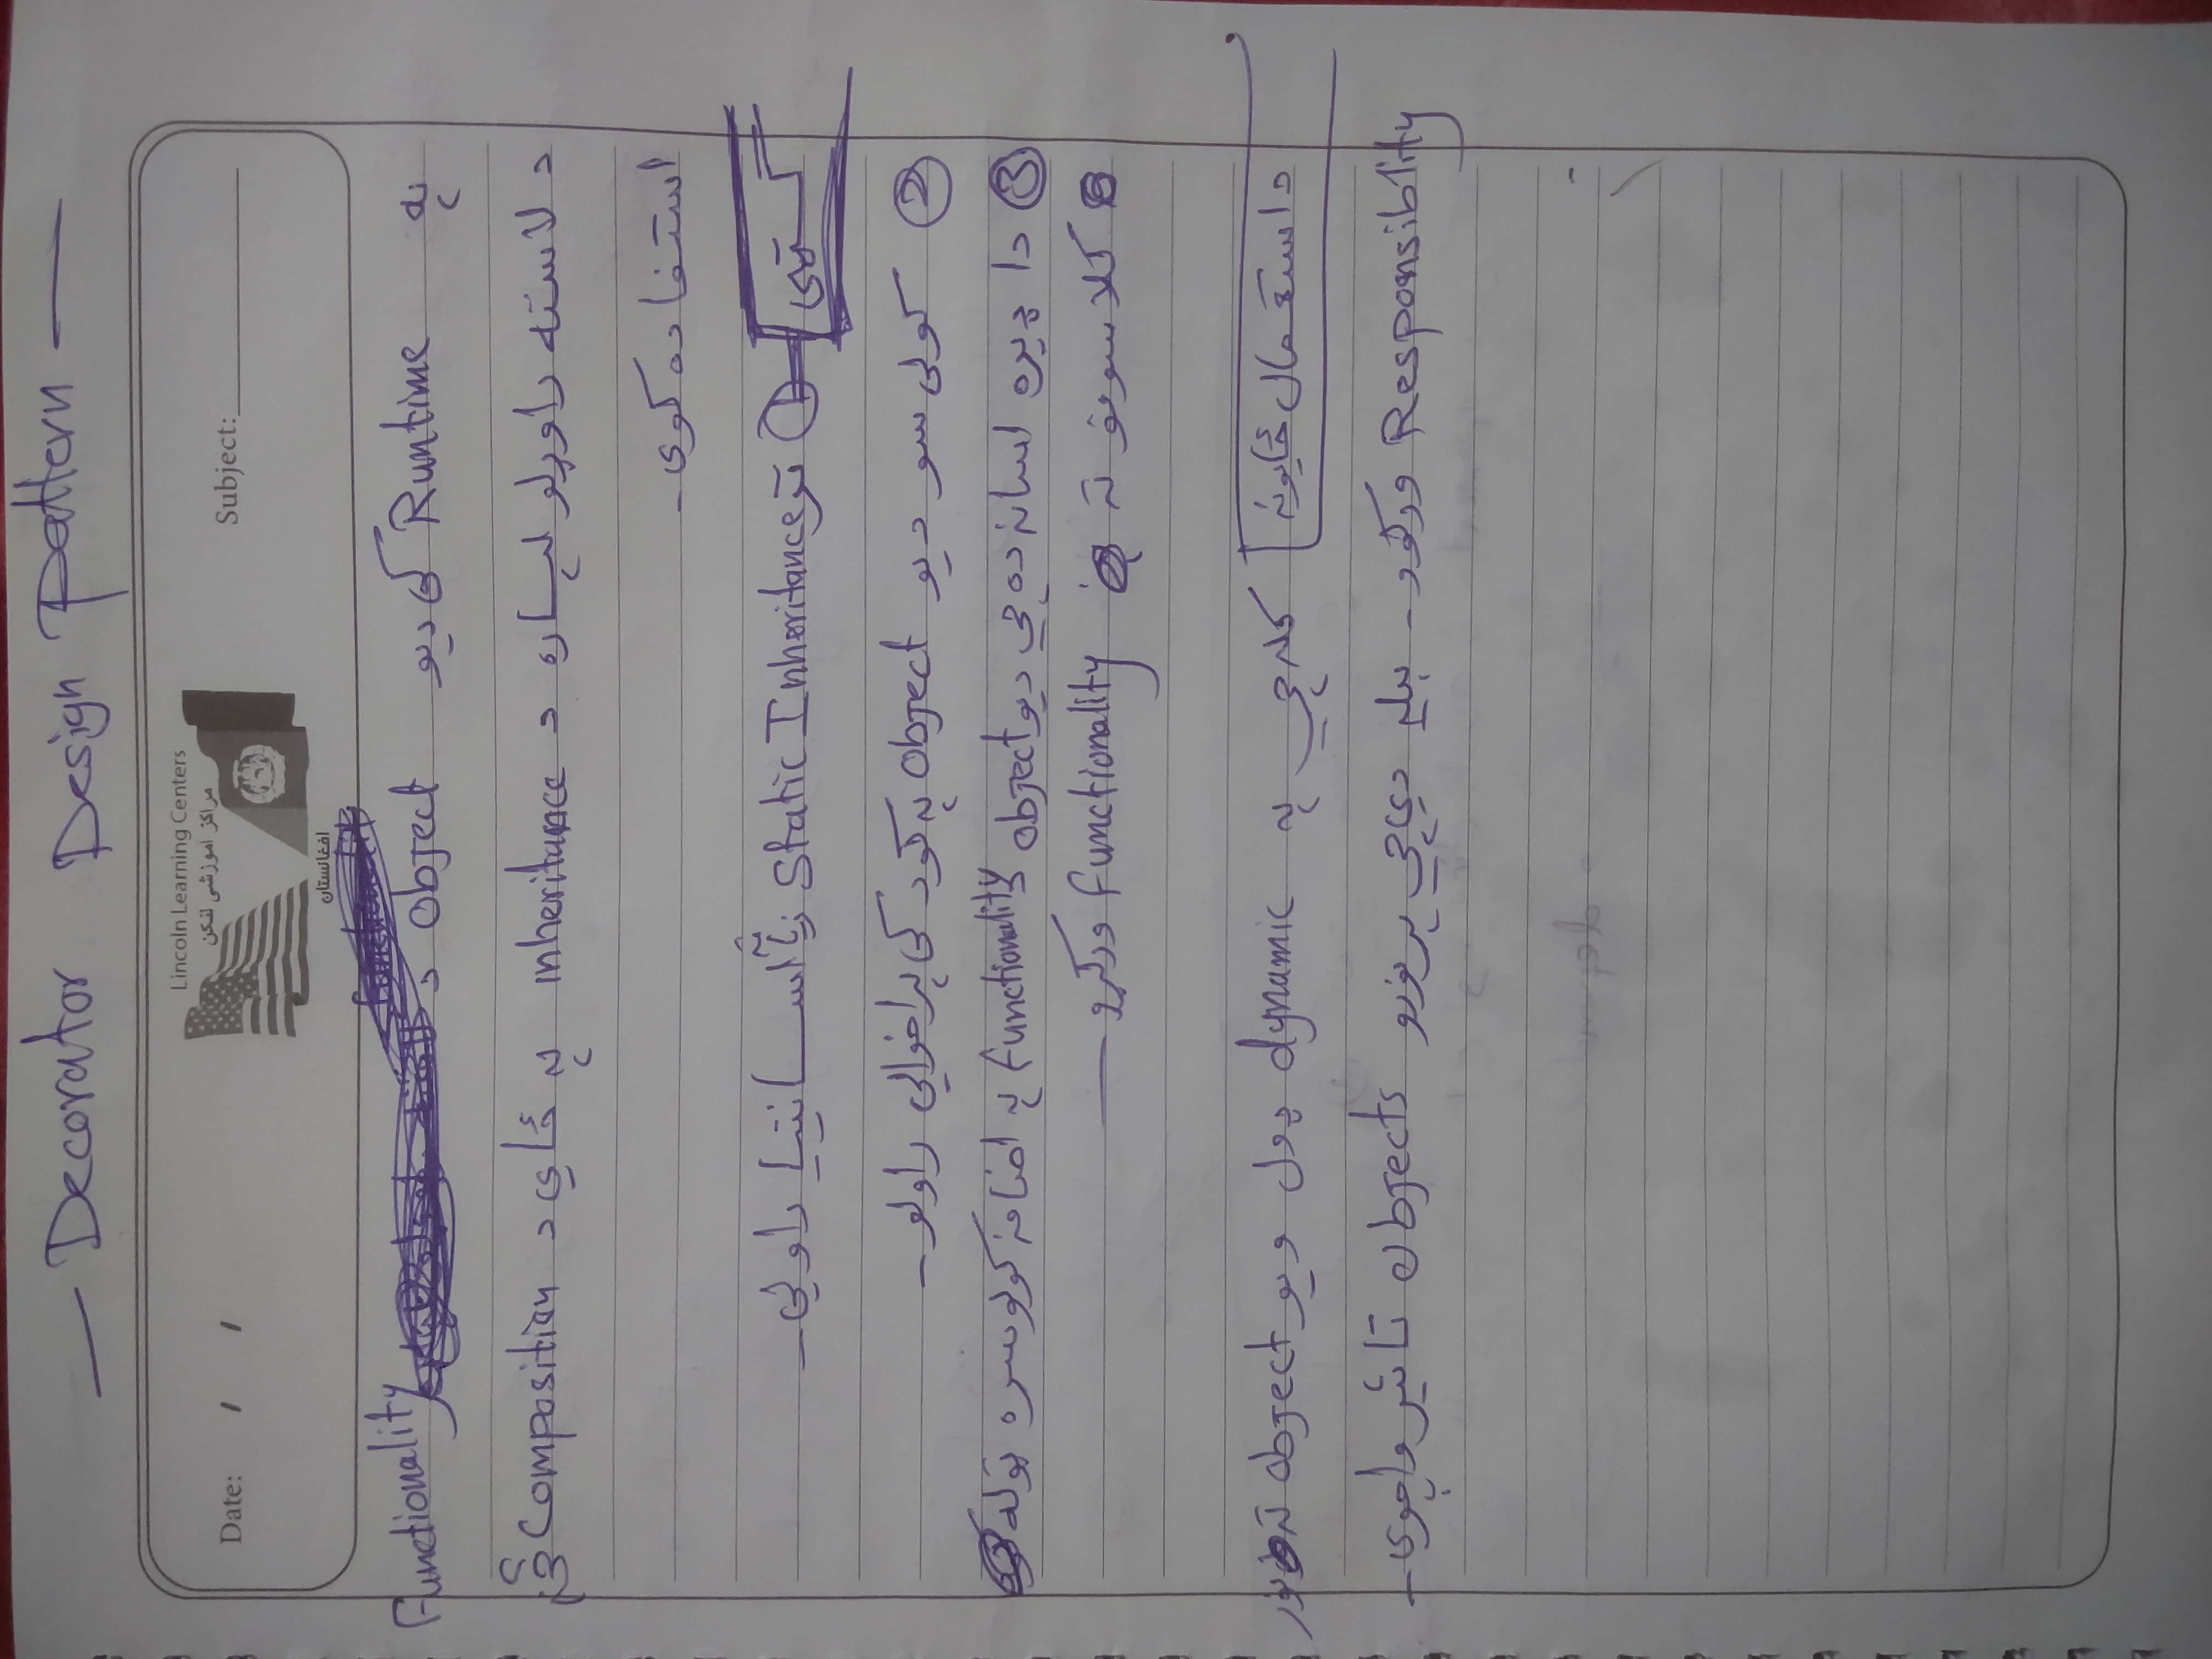 — Decorator Design Pattern —
Lincoln Learning Centers
مراکز آموزشی لنکن
Date: / /
Subject:
افغانستان
په Runtime کی دیو object د Functionality
د لاسته راوړلو لپاره د inheritance په ځای د Composition څخه
استفاده کوی۔
ګټی ① تر Static Inheritance زیاته آسانتیا راولي۔
② کولی سو دیو object په کود کی پراخوالی راولو۔
③ دا ډیره اسانه ده چي دیو object functionality په اضافه کولو سره ټوله
کلاسونو ته functionality ورکړو —
د استعمال ځایونه کله چي په dynamic ډول ویو object ته نور
Responsiblity ورکوو۔ بیله دې چي پر نورو objects تاثیر واچوی۔